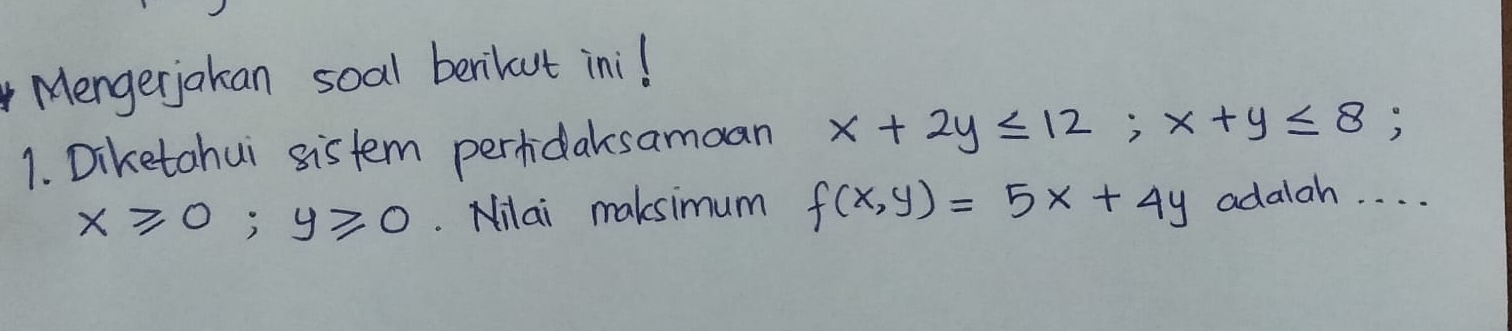 * Mengerjakan soal berikut ini!
1. Diketahui sistem pertidaksamaan x + 2y ≤ 12 ; x + y ≤ 8 ;
x ≥ 0 ; y ≥ 0 . Nilai maksimum f(x,y) = 5x + 4y adalah ....